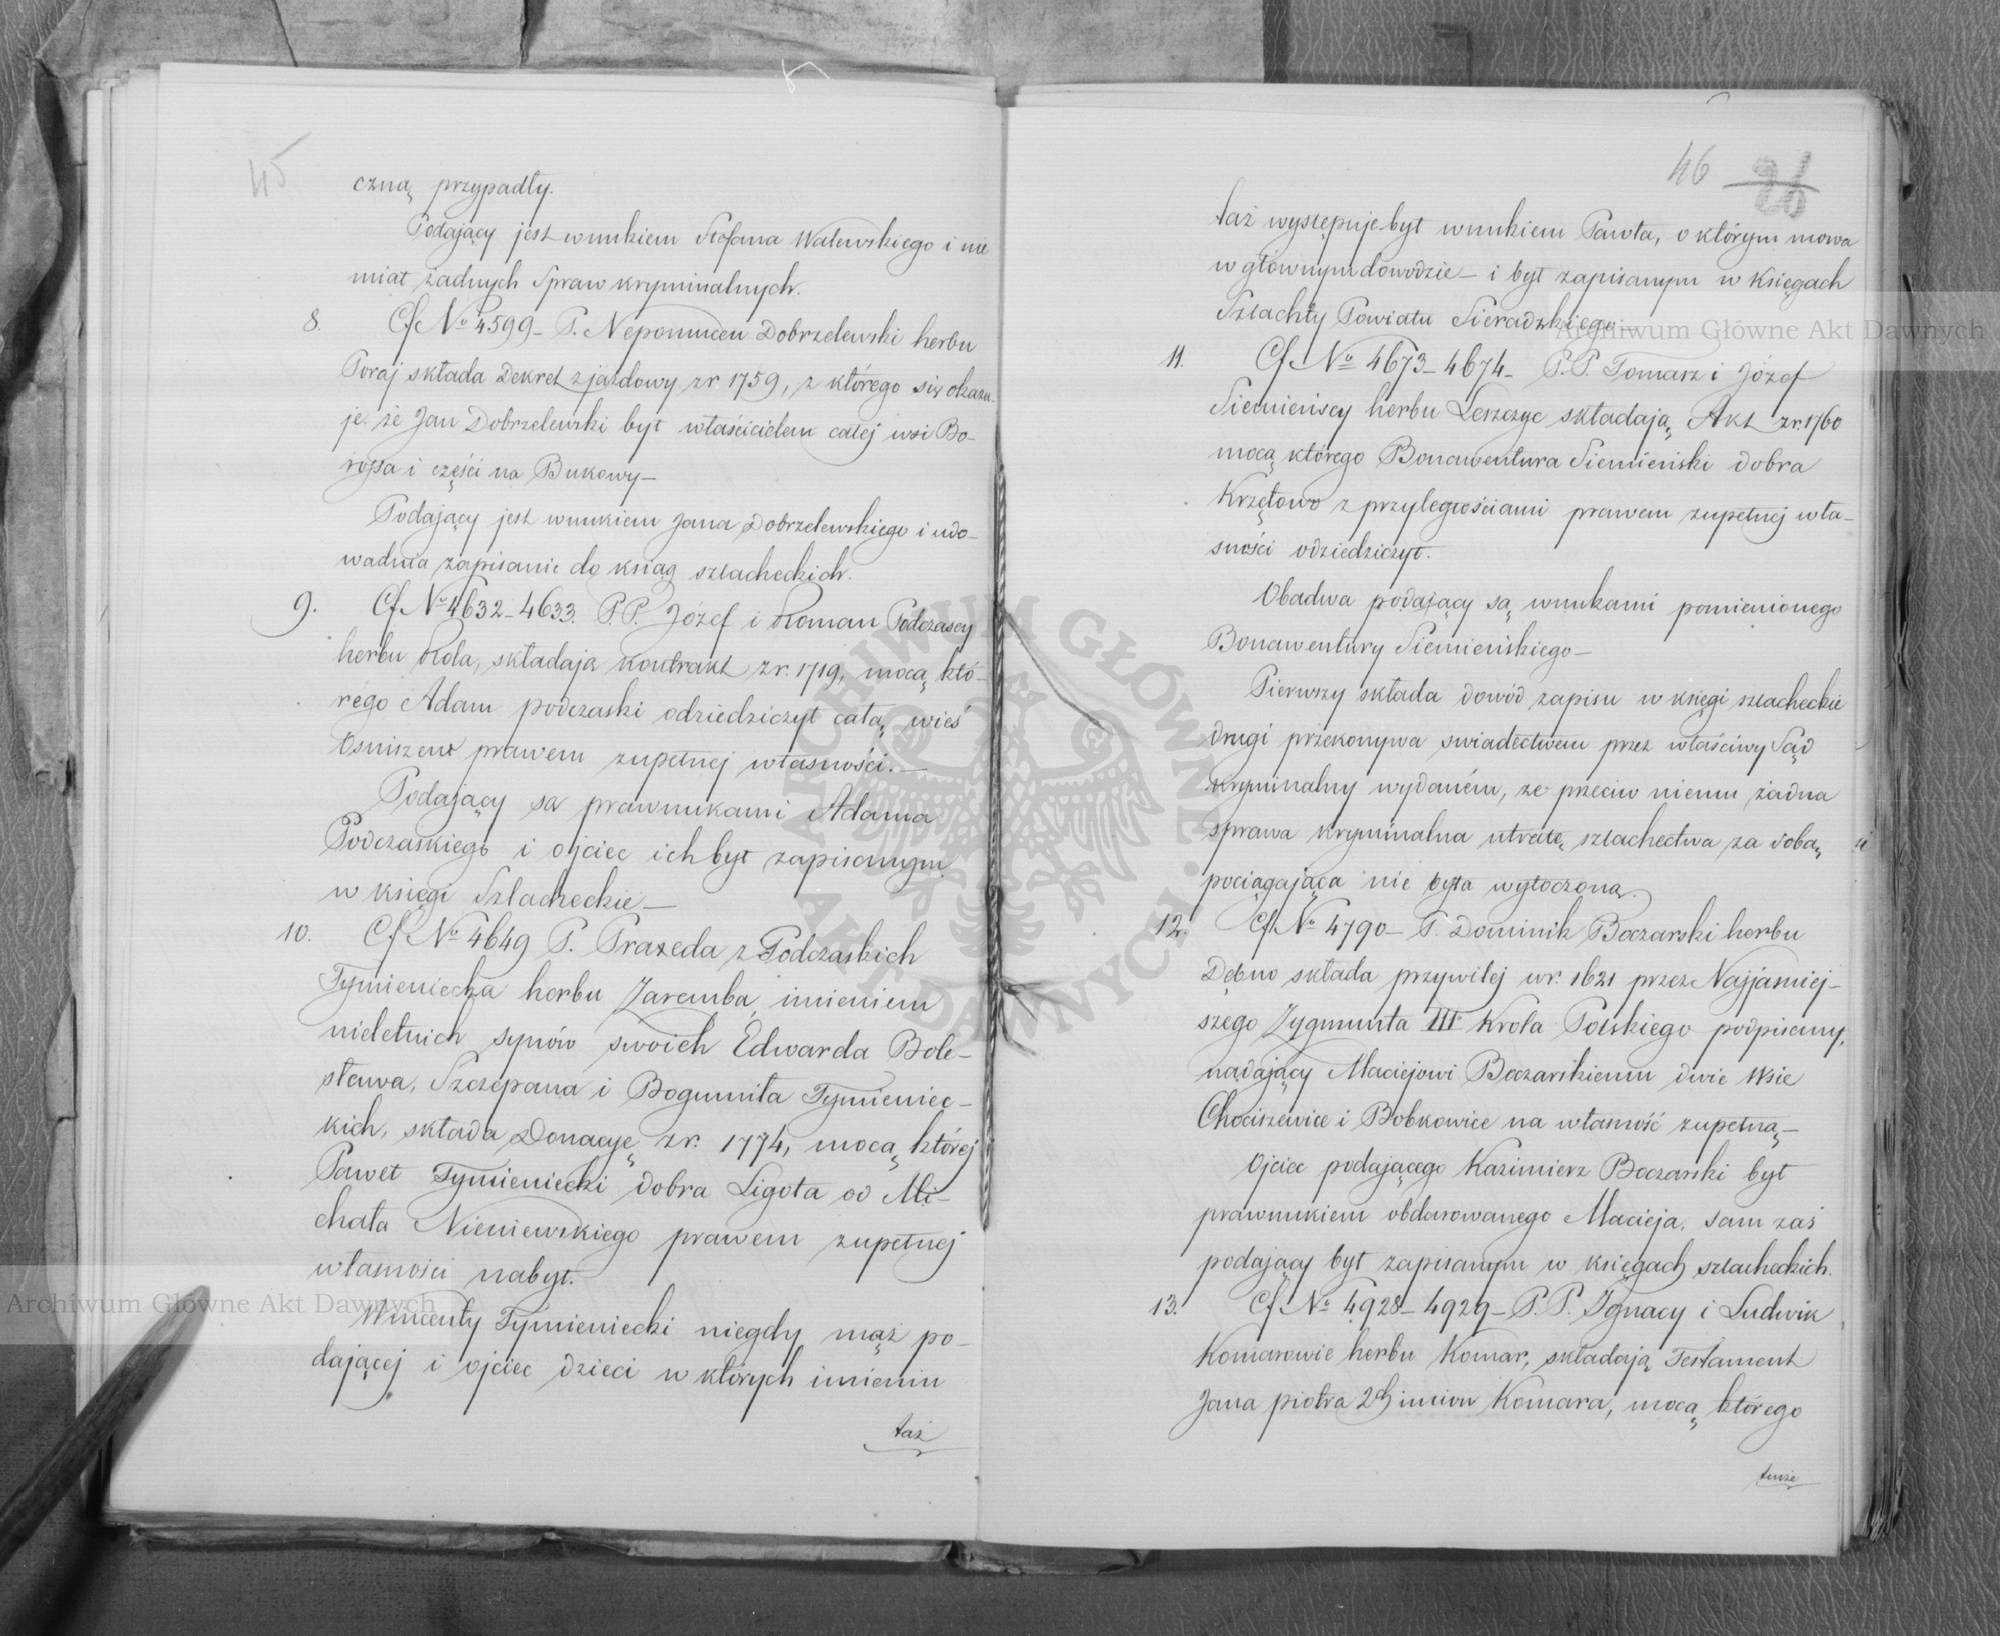 45
czną przypadły.
Podający jest wnukiem Stefana Walewskiego i nie
miał żadnych Spraw kryminalnych.
8. Cf No 4599 – P. Nepomucen Dobrzelewski herbu
Poraj składa Dekret zjazdowy z r. 1759, z którego się okazu-
je że Jan Dobrzelewski był właścicielem całej wsi Bo-
i części na Bukowy –
Podający jest wnukiem Jana Dobrzelewskiego i udo-
wadnia zapisanie do ksiąg szlacheckich.
9. Cf No 4632–4633. P.P. Józef i Roman Podczascy
herbu Rola, składają kontrakt z r. 1719, mocą któ-
rego Adam podczaski odziedziczył całą wieś
prawem zupełnej własności. –
Podający sa prawnukami Adama
Podczaskiego i ojciec ich był zapisanym
w księgi Szlacheckie –
10. Cf No 4649 P. Praxeda z Podczaskich
Tymieniecka herbu Zaremba, imieniem
nieletnich synów swoich Edwarda Bole-
sława, Szczepana i Bogumiła Tymieniec-
kich, składa Donacyę z r. 1774, mocą której
Paweł Tymieniecki dobra Ligota od Mi-
chała Nieniewskiego prawem zupełnej
własności nabył.
Wincenty Tymieniecki niegdy mąż po-
dającej i ojciec dzieci w których imieniu
taż
46 26
taż występuje był wnukiem Pawła, o którym mowa
w głównym dowodzie – i był zapisanym w Księgach
Szlachty Powiatu Sieradzkiego –
11. Cf No 4673–4674 – P.P. Tomasz i Józef
Siemieńscy herbu Leszczyc składają Akt z r. 1760
mocą którego Bonawentura Siemieński dobra
Krzętowo z przyległościami prawem zupełnej wła-
sności odziedziczył.
Obadwa podający są wnukami pomienionego
Bonawentury Siemieńskiego –
Pierwszy składa dowód zapisu w księgi szlacheckie
drugi przekonywa swiadectwem przez właściwy Sąd
kryminalny wydaném, ze przeciw niemu żadna
sprawa kryminalna utratę szlachectwa za sobą
pociągająca nie była wytoczoną.
12. Cf No 4790 – P. Dominik Boczarski herbu
Dębno składa przywilej w r. 1621 przez Najjaśniej-
szego Zygmunta III Krola Polskiego podpisany,
nadający Maciejowi Boczarskiemu dwie Wsie
Chociszewice i Bobkowice na własność zupełną –
Ojciec podającego Kazimierz Boczarski był
prawnukiem obdarowanego Macieja, sam zaś
podający był zapisanym w księgach szlacheckich.
13. Cf No 4928–4929 – P.P. Ignacy i Ludwik
Komarowie herbu Komar, składają Testament
Jana piotra 2ch imion Komara, mocą którego
tenże
Archiwum Główne Akt Dawnych
Archiwum Główne Akt Dawnych
ARCHIWUM GŁÓWNE AKT DAWNYCH